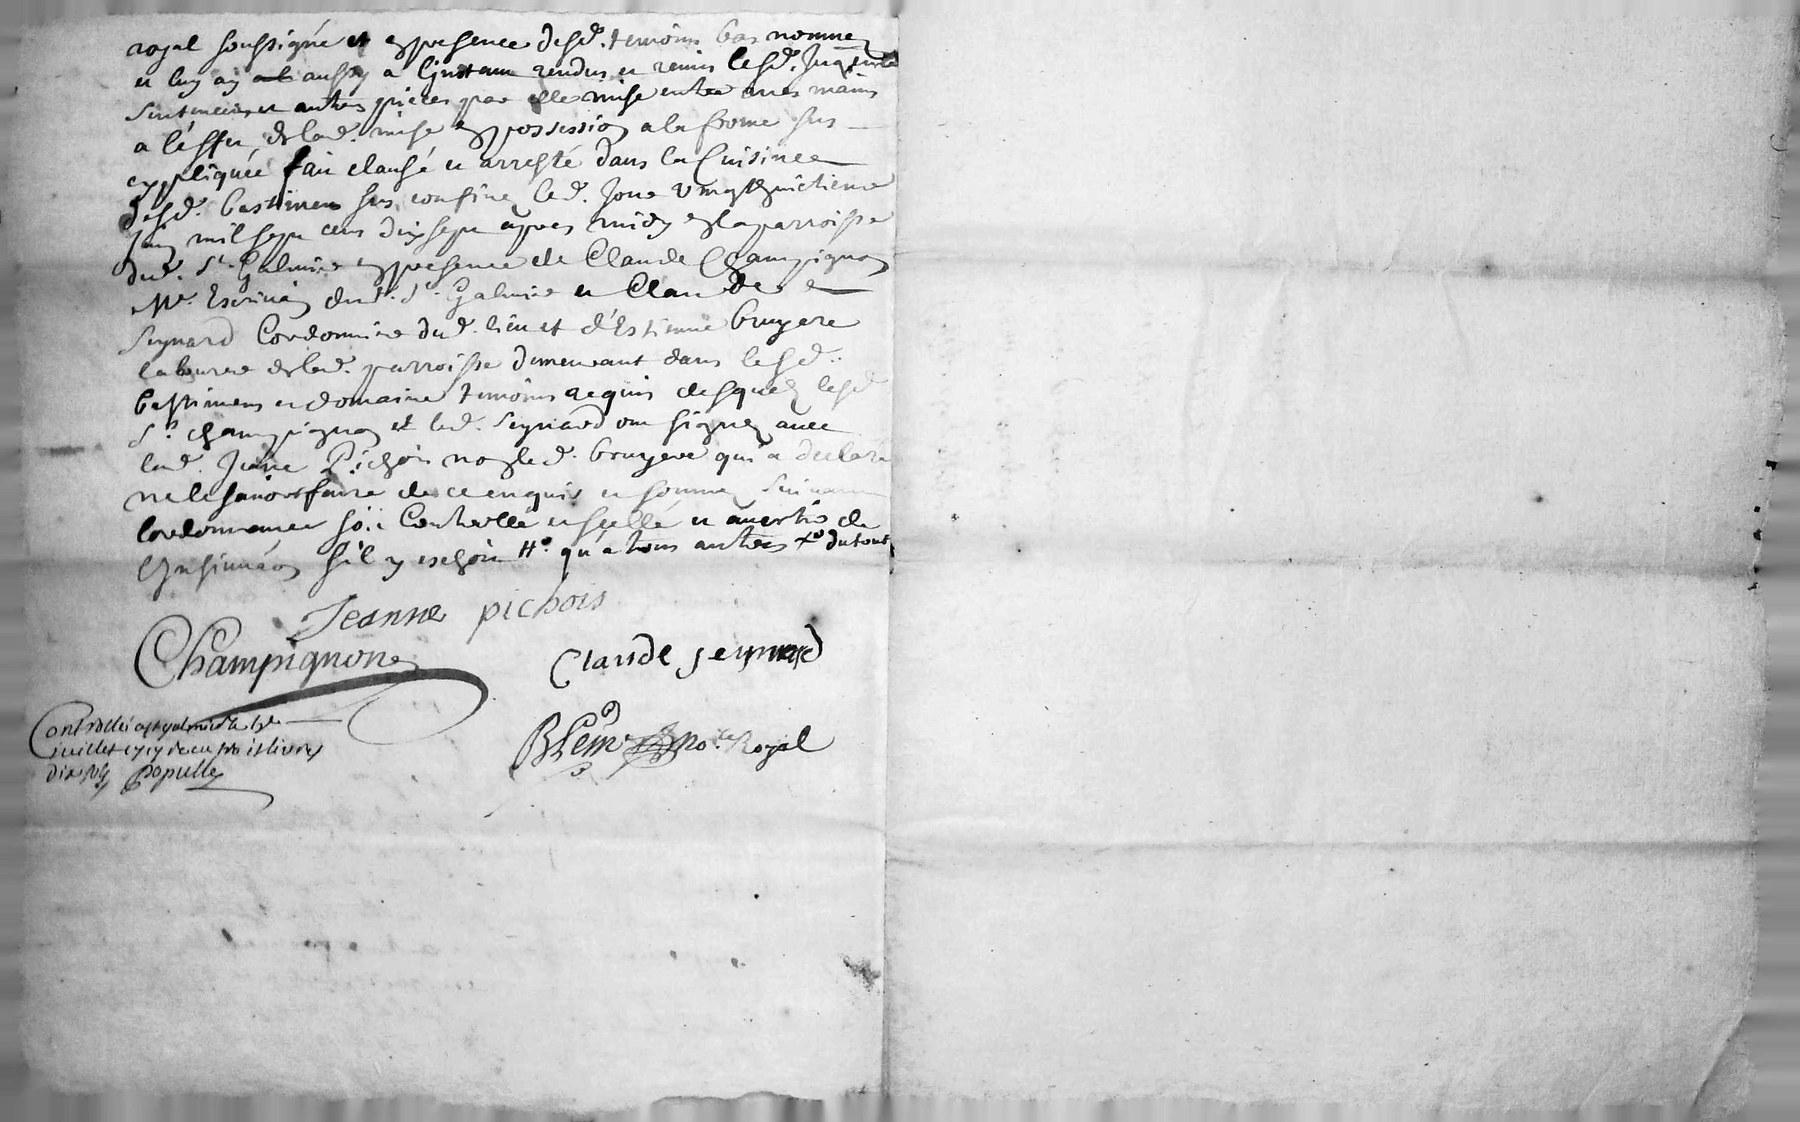 royal soussigné et en presence desd. temoins bas nommez
et luy ay aussy a Linstant rendus et remis lesd.
sentences et autres pieces par elle mise entre mes mains
a l'éffet de lad. mise en possession a la forme sus
expliquée fait clausé et arresté dans la Cuisine
desd. bastimens sus confinez led. Jour vingthuictieme
Juin mil sept cens dix sept apres midy en la parroisse
dud. St. Galmier en presence de Claude Champignon
Me. Escrivain dud. St. Galmier et Claude
Seynard Cordonnier dud. lieu et d'Estienne bruyere
laboureur de lad. parroisse demeurant dans lesd.
bastimens et domaine temoins requis desquelz lesd.
Sr. champignon et led. Seynard ont signez avec
lad. Jeane Pichois non led. bruyere qui a declaré
ne le scavoir faire de ce enquis et sommez suivant
lordonnance soit Controllé et scellé et avertis de
Linsinuaon s'il y eschoit qu'a tous autres du tout
Jeanne pichois
Champignon
Claude seynard
Controllé a st galmier le
juillet 1717 receu trois livres
dix sols Populle
no.re Royal